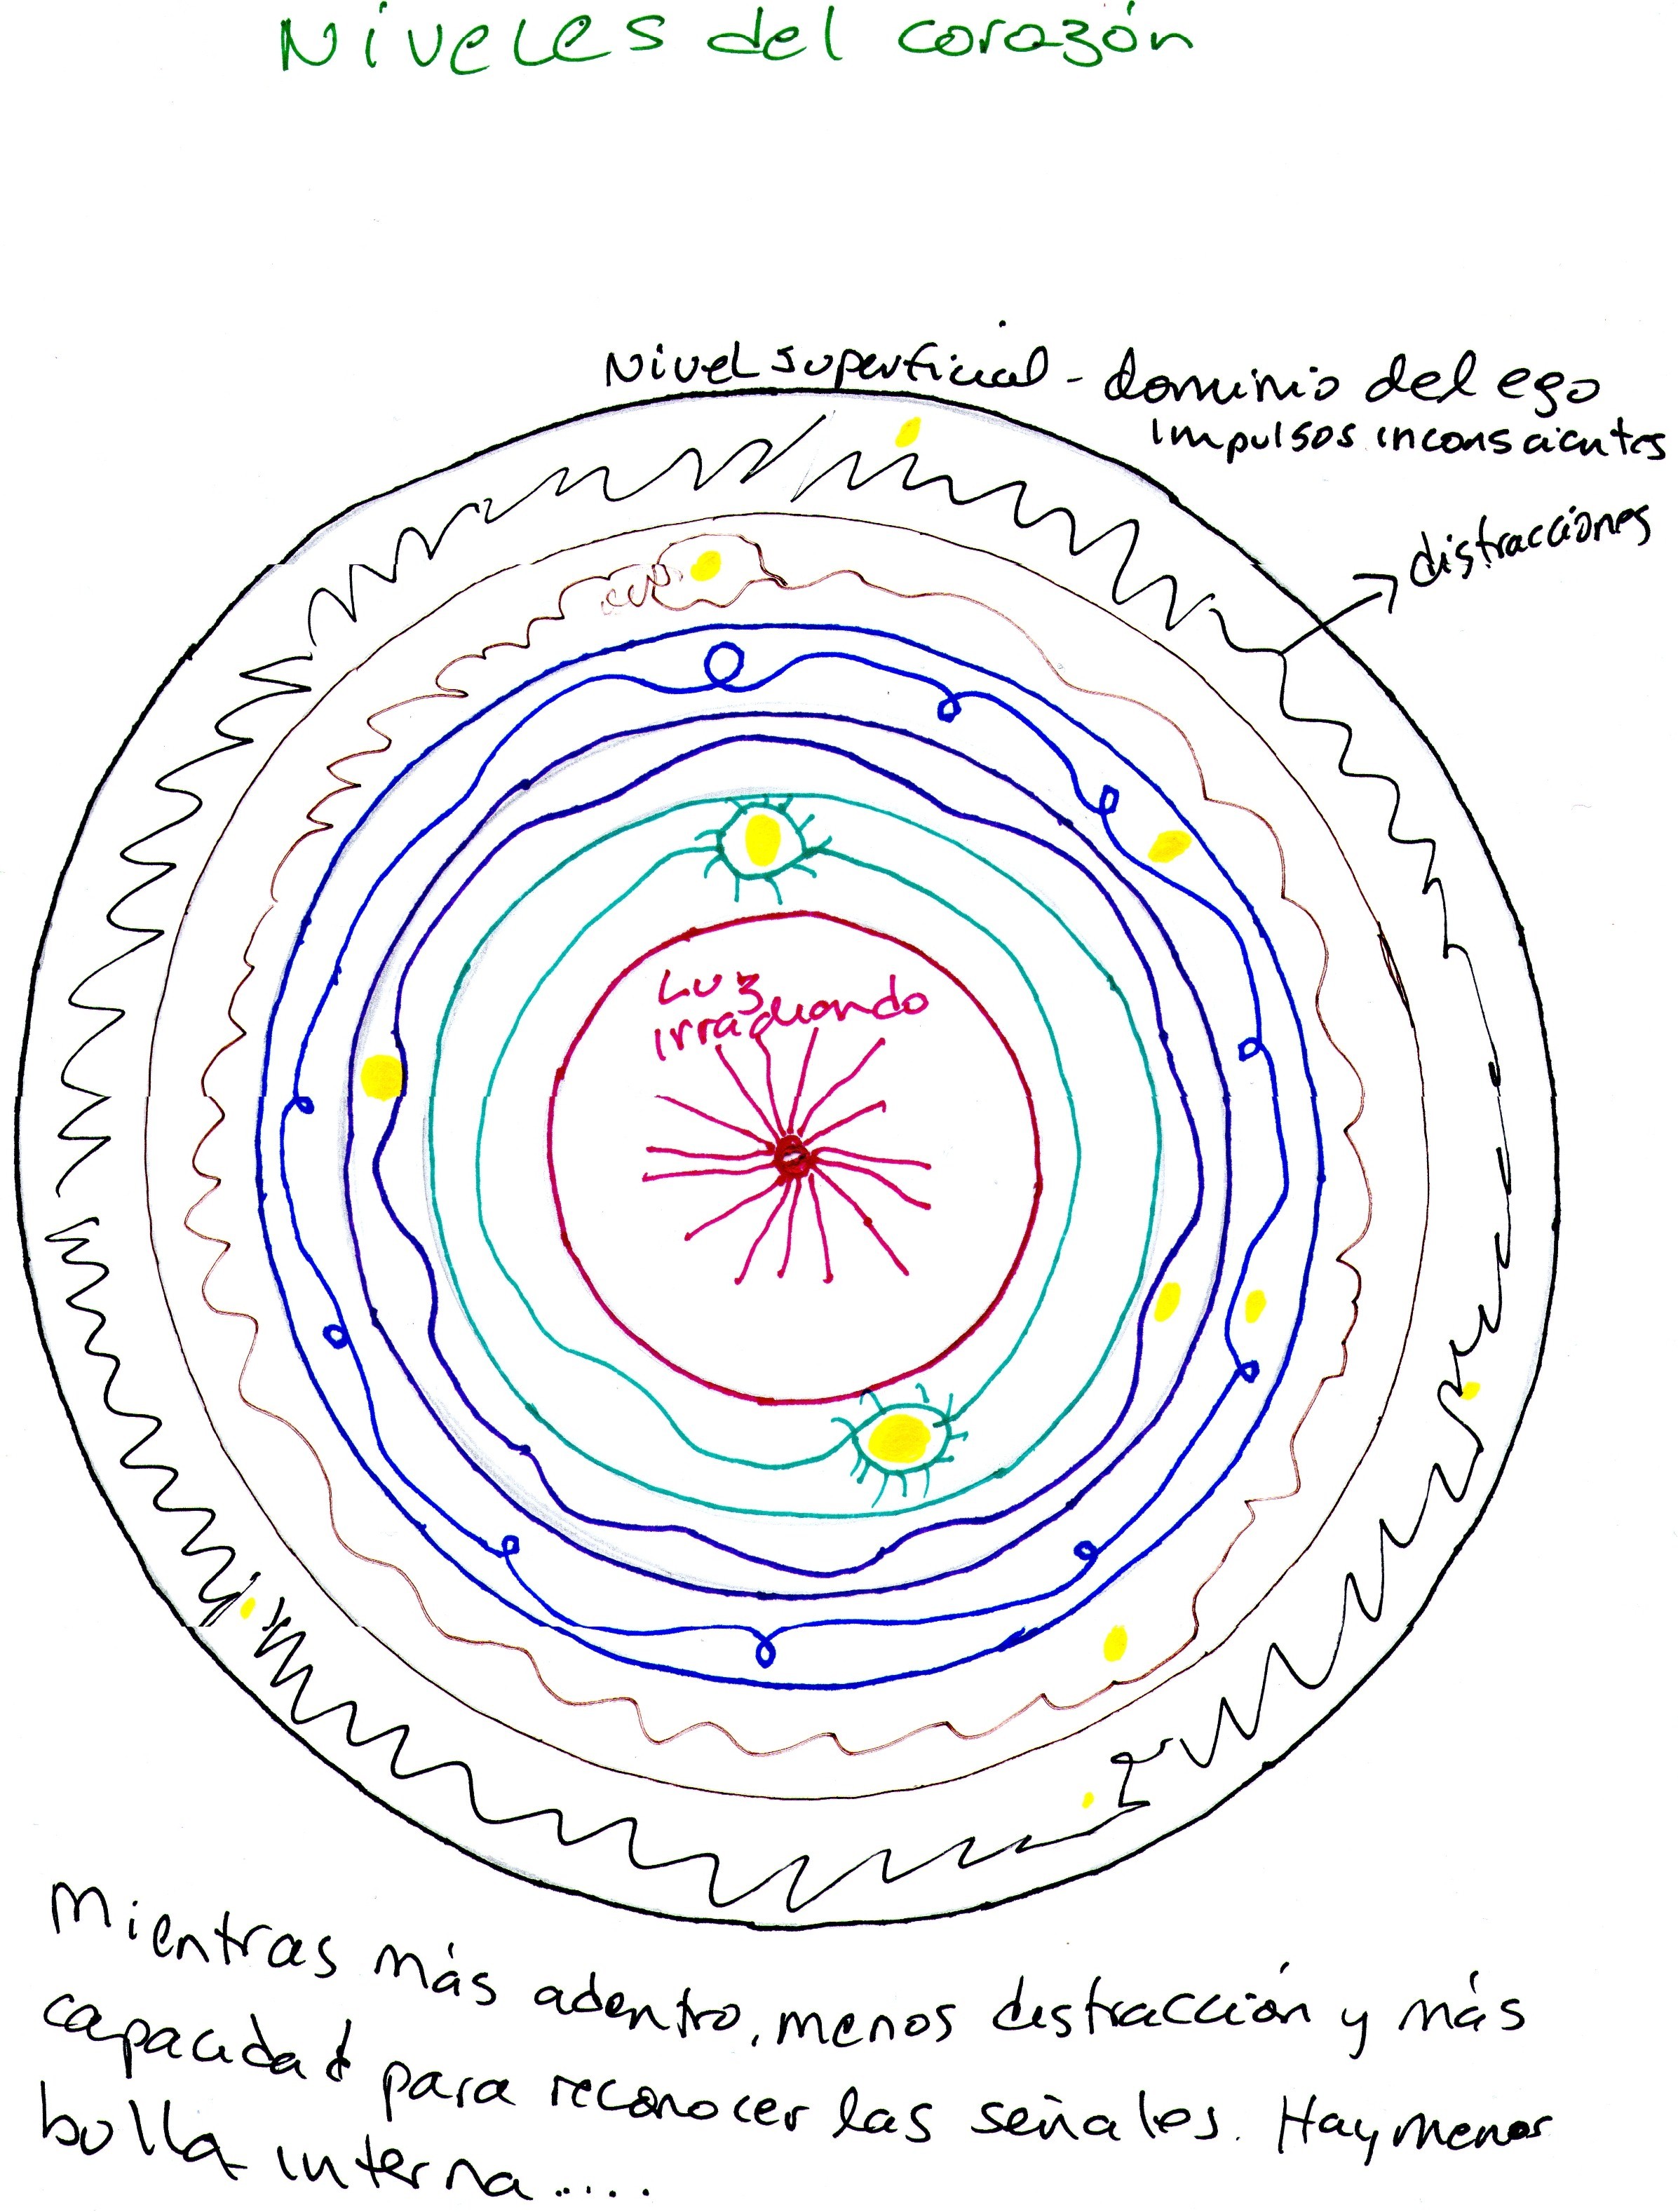 Niveles del corazón
Nivel superficial - dominio del ego
Impulsos inconscientes
distracciones
Luz
irradiando
Mientras más adentro, menos distracción y más
capacidad para reconocer las señales. Hay menos
bulla interna.....